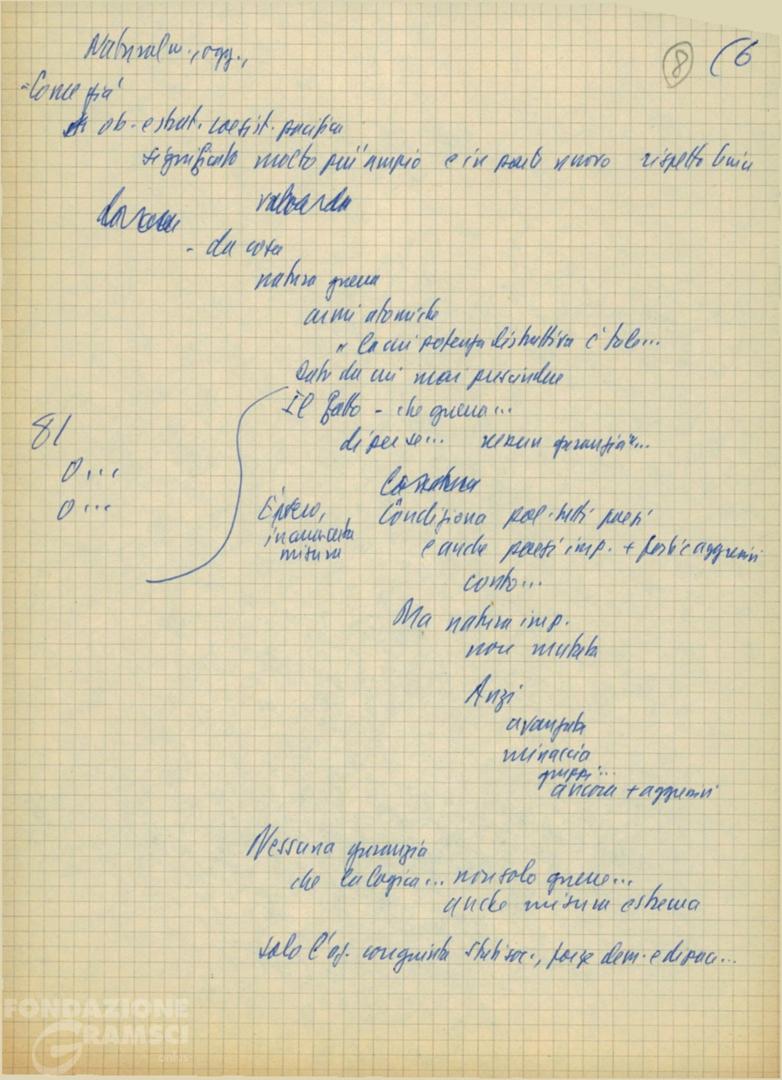 Naturalm., ogg.,
8 (6
"Come già
ob-estrat. coesist. pacifica
significato molto più ampio e in parte nuovo rispetto
- da cosa
natura guerra
armi atomiche
" la cui potenza distruttiva è tale...
Dato da cui mai prescindere
Il fatto - che guerra...
di per se... nessun garanzia"...
81
0...
0...
È vero,
in una certa
misura
Condiziona pol. tutti paesi
e anche paesi imp. + forti e aggressivi
conto...
Ma natura imp.
non mutata
Anzi
avanzata
minaccia
gruppi...
ancora + aggressivi
Nessuna garanzia
che la logica... non solo guerre...
anche misura estrema
solo l'az. congiunta stati soc., forze dem. e di pace...
FONDAZIONE
GRAMSCI
onlus